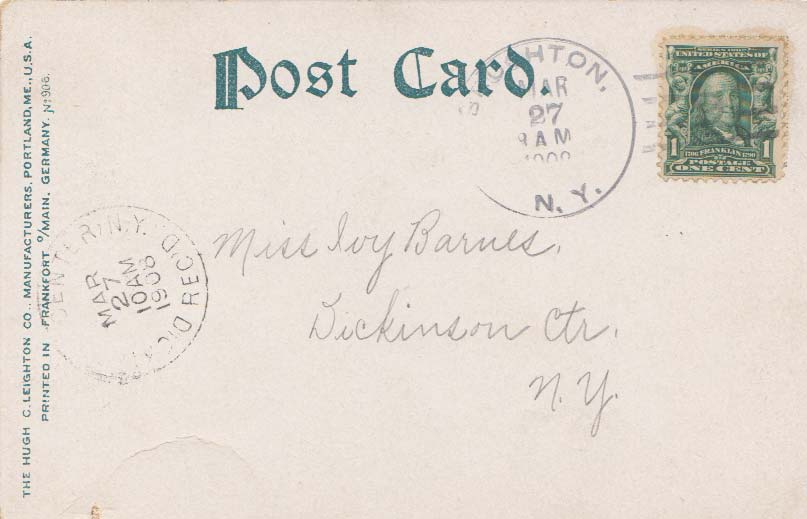 Post Card.
MAR
27
9 AM
N.Y.
SERIES 1902
UNITED STATES OF
AMERICA
1706 FRANKLIN 1790
1 POSTAGE 1
ONE CENT
Miss Ivy Barnes,
Dickinson Ctr.
N.Y.
N.Y. REC'D
MAR
27
10 AM
1908
THE HUGH C. LEIGHTON CO., MANUFACTURERS, PORTLAND, ME., U.S.A.
PRINTED IN FRANKFORT o/MAIN, GERMANY. No 906.